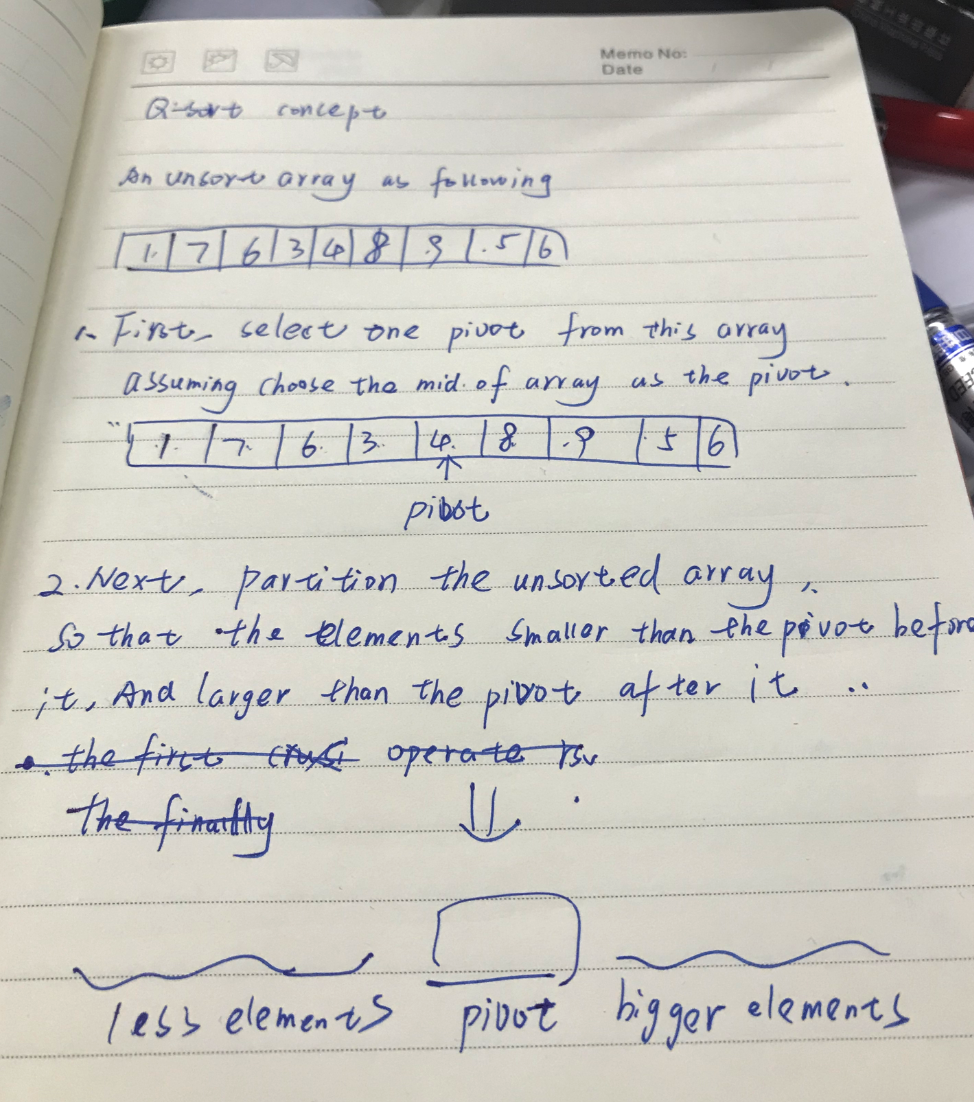 Memo No:
Date
Q-sort concept
An unsort array as following
1. 7 6 3 4 8 .9 .5 6
1. First, select one pivot from this array
assuming choose the mid. of array as the pivot.
1. 7. 6. 3. 4. 8 .9 .5 6
pivot
2. Next, partition the unsorted array,
so that the elements smaller than the pivot before
it, And larger than the pivot after it ..
the first operate
the finally
less elements pivot bigger elements